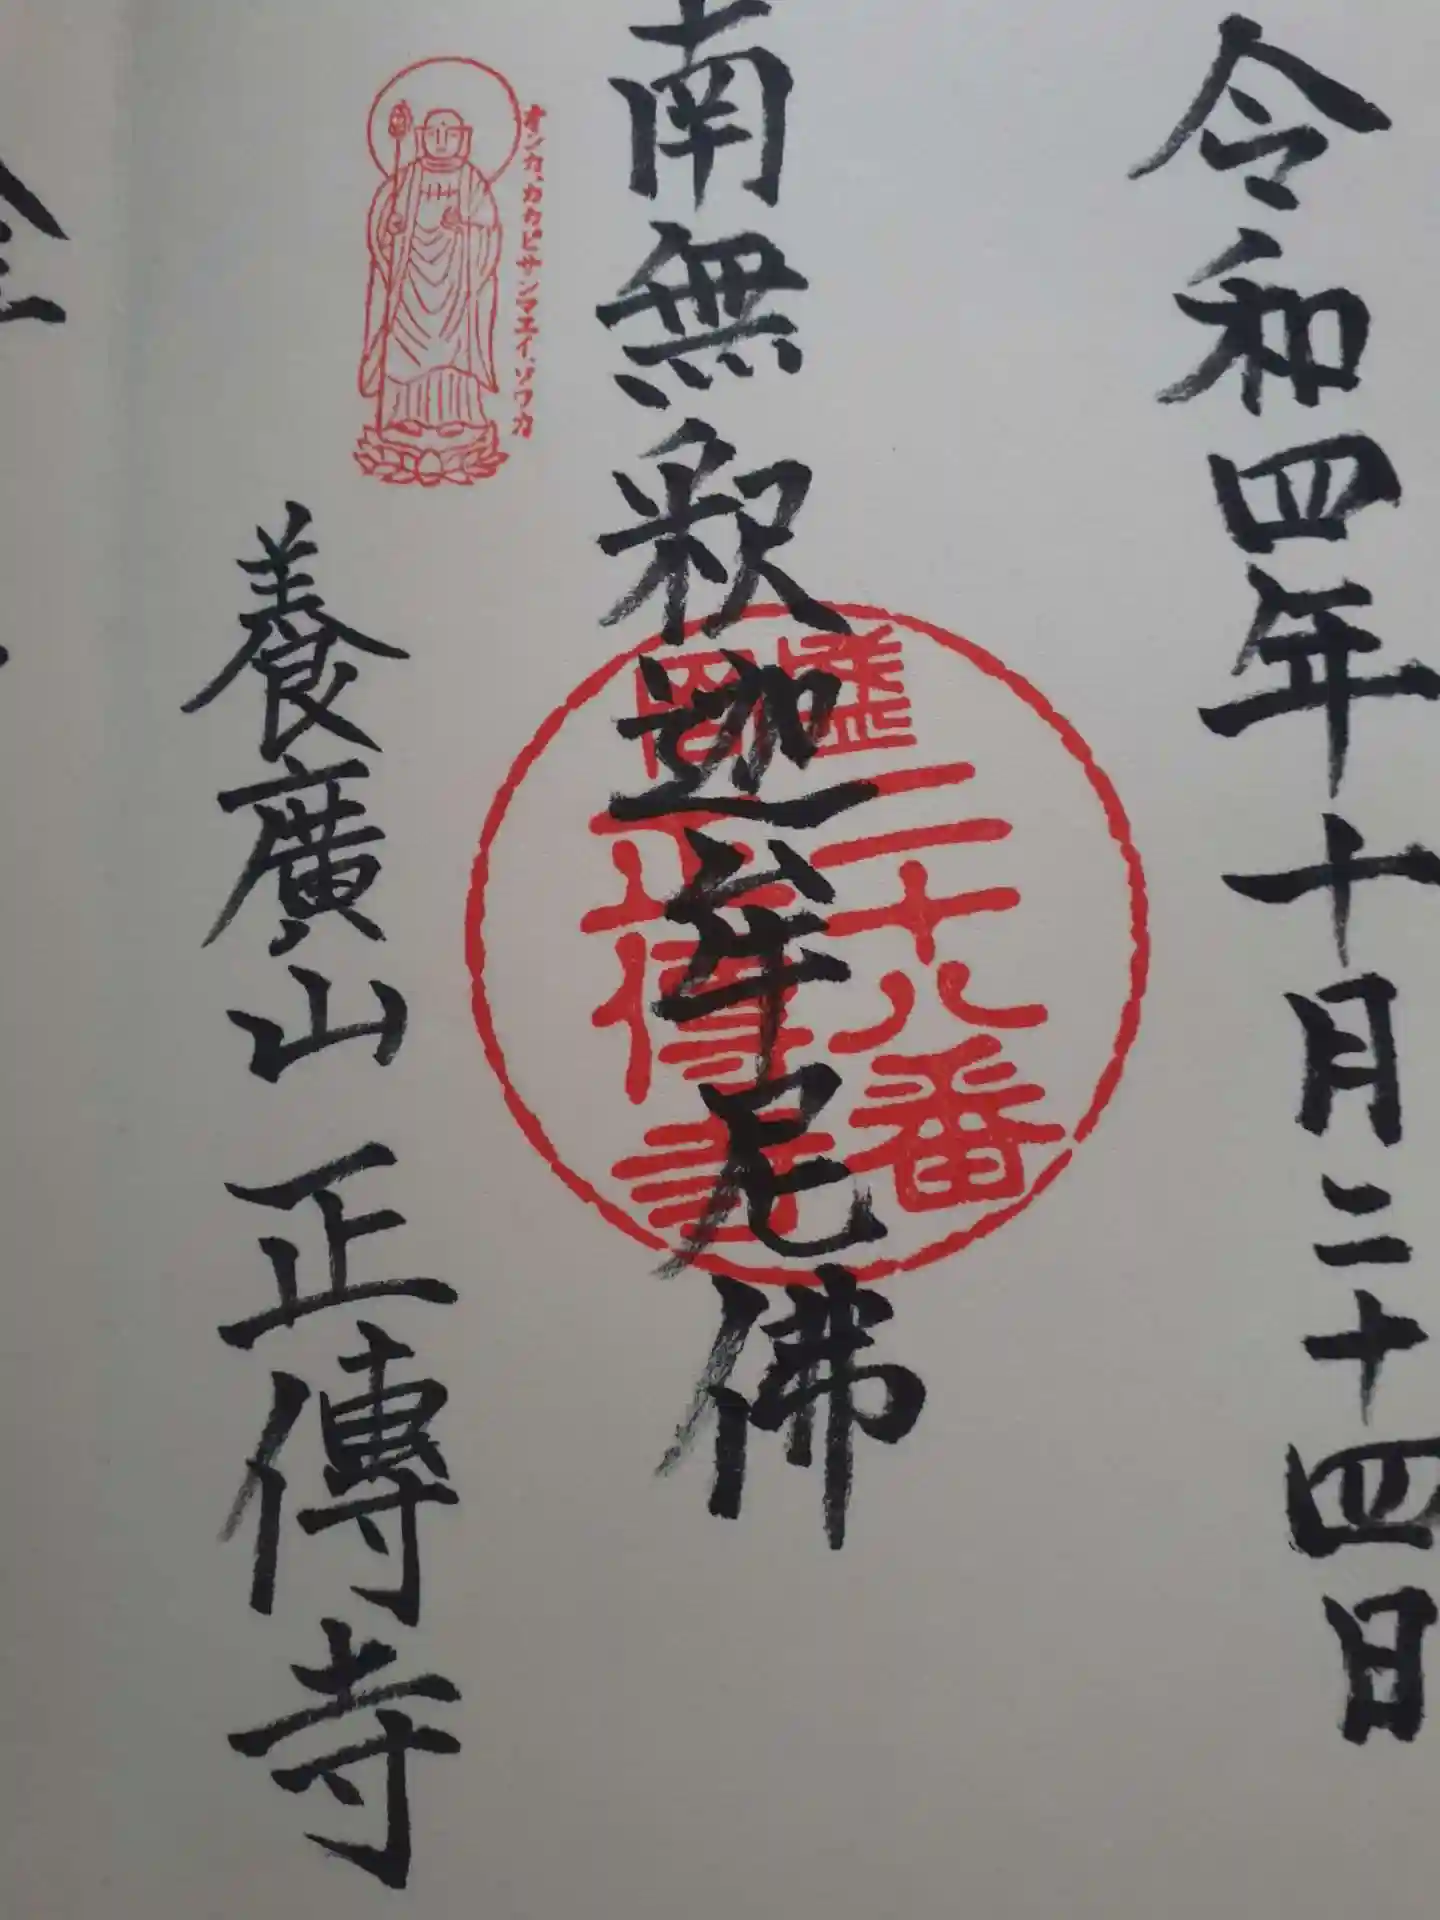 令和四年十月二十四日
南無釈迦牟尼佛
盛岡
二十八番
正傳寺
オンカ、カカビサンマエイ、ソワカ
養廣山 正傳寺